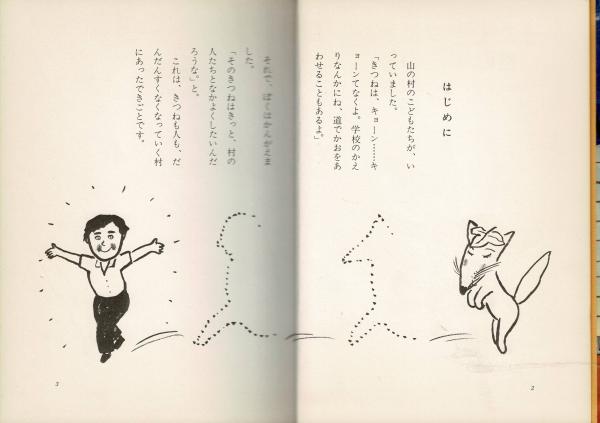 はじめに
山の村のこどもたちが、い
っていました。
「きつねは、キョーン……キ
ョーンてなくよ。学校のかえ
りなんかにね、道でかおをあ
わせることもあるよ。」
それで、ぼくはかんがえま
した。
「そのきつねはきっと、村の
人たちとなかよくしたいんだ
ろうな。」と。
これは、きつねも人も、だ
んだんすくなくなっていく村
にあったできごとです。
2
3